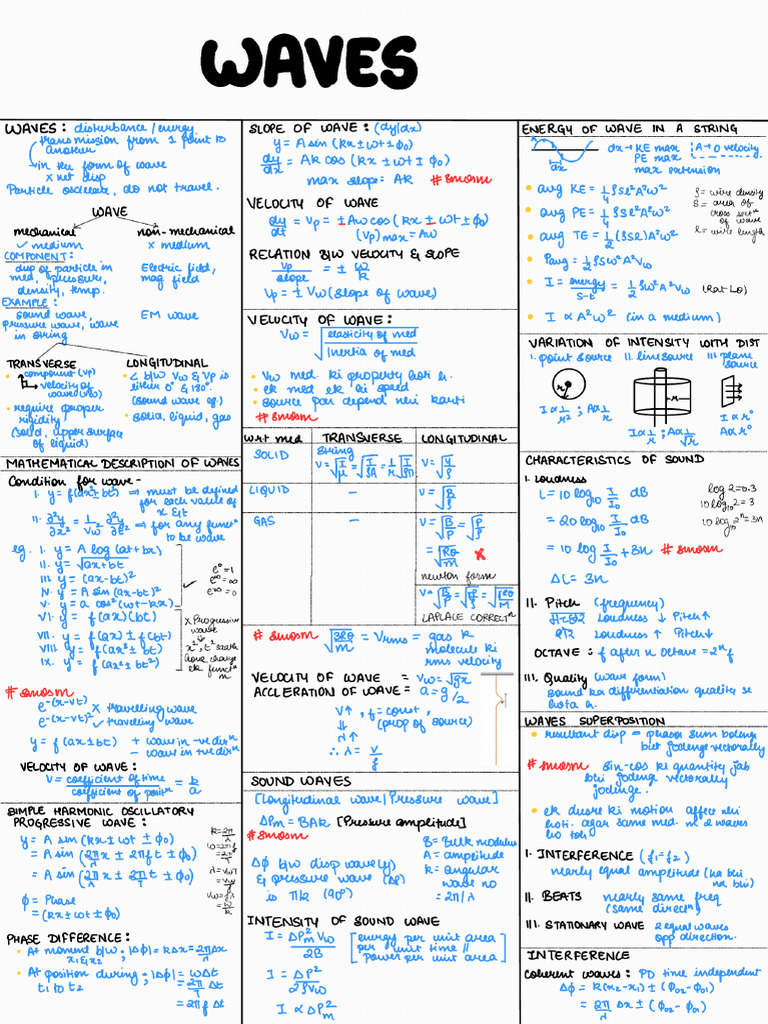 WAVES
WAVES: disturbance/energy
transmission from 1 point to
another
→ in the form of wave
x net disp
Particle oscillate, do not travel.
WAVE
mechanical
✓ medium
non-mechanical
x medium
COMPONENT:
disp of particle in
med, pressure,
density, temp.
Electric field,
mag field
EXAMPLE:
sound wave,
pressure wave, wave
in string
EM wave
TRANSVERSE
component (Vp)
velocity of
wave (Vw)
• require proper
rigidity
(solid, upper surface
of liquid)
LONGITUDINAL
• ∠ b/w Vw & Vp is
either 0° & 180°.
(sound wave eg.)
• solid, liquid, gas
MATHEMATICAL DESCRIPTION OF WAVES
Condition for wave -
I. y = f(ax ± bt) ⇒ must be defined
for each value of
x & t
II. ∂²y/∂x² = 1/Vw² ∂²y/∂t² ⇒ for any funcⁿ
to be wave
eg. I. y = A log (at + bx)
II. y = √ax + bt
III. y = (ax - bt)²
IV. y = A sin (ax - bt)²
V. y = a cos² (wt - kx)
VI. y = f(ax)(bt)
VII. y = f(ax) ± f(bt)
VIII. y = f(ax² ± bt)
IX. y = f(ax² ± bt²)
✓
e⁰ = 1
e^∞ = ∞
x Progressive
wave
# smosm
e^-(x-vt) x travelling wave
e^-(x-vt)² ✓ travelling wave
y = f(ax ± bt) + wave in -ve dirⁿ
- wave in +ve dirⁿ
VELOCITY OF WAVE:
V = coefficient of time / coefficient of positⁿ = b/a
SIMPLE HARMONIC OSCILLATORY
PROGRESSIVE WAVE:
y = A sin (kx ± wt ± φ0)
= A sin (2π/λ x ± 2πft ± φ0)
= A sin (2π/λ x ± 2π/T t ± φ0)
φ = Phase
= (kx ± wt ± φ0)
k = 2π/λ
PHASE DIFFERENCE:
• At moment b/w x1 & x2; |Δφ| = kΔx = 2π/λ Δx
• At position during t1 to t2; |Δφ| = wΔt
= 2π/T Δt
= 2πf Δt
SLOPE OF WAVE: (dy/dx)
y = A sin (kx ± wt ± φ0)
dy/dx = Ak cos (kx ± wt ± φ0)
max slope = Ak # smosm
VELOCITY OF WAVE
dy/dt = Vp = ± Aw cos (kx ± wt ± φ0)
(Vp)max = Aw
RELATION B/W VELOCITY & SLOPE
Vp/slope = ± w/k
Vp = ± Vw (slope of wave)
VELOCITY OF WAVE:
Vw = √elasticity of med / inertia of med
• Vw med. ki property hoti h.
• ek med ek hi speed
• source par depend nhi karti
# smosm
wrt med
TRANSVERSE
LONGITUDINAL
SOLID
string
V = √T/μ = √T/ρA = 1/r √T/πρ
V = √Y/ρ
LIQUID
-
V = √B/ρ
GAS
-
V = √B/ρ = √P/ρ
= √RT/m x
newton form
LAPLACE CORRECTⁿ
# smosm √3RT/m = Vrms = gas k
molecule ki
rms velocity
VELOCITY OF WAVE = Vw = √gx
ACCLERATION OF WAVE = a = g/2
V↑, f = const,
(prop of source)
⇓
λ↑
∴ λ = V/f
SOUND WAVES
[longitudinal wave | Pressure wave]
ΔPm = BAk [Pressure amplitude]
# smosm
Δφ b/w disp wave (y)
& pressure wave (ΔP)
is π/2 (90°)
B = Bulk modulus
A = amplitude
k = angular
wave no
= 2π/λ
INTENSITY OF SOUND WAVE
I = ΔP²m Vw / 2B
[energy per unit area
per unit time //
power per unit area]
I = ΔP² / 2ρVw
I ∝ ΔP²m
ENERGY OF WAVE IN A STRING
dx
dx → KE max
PE max
max extension
A → 0 velocity
• avg KE = 1/4 ρSl A²w²
• avg PE = 1/4 ρSl A²w²
• avg TE = 1/2 (ρSl) A²w²
• Pavg = 1/2 ρSw²A²Vw
• I = energy/s-t = 1/2 ρw²A²Vw (Rat Lo)
• I ∝ A²w² (in a medium)
ρ = wire density
S = area of
cross sectⁿ
of wave
l = wire length
VARIATION OF INTENSITY WITH DIST
I. point source
II. line source
III. plane
source
r
I ∝ 1/r²; A ∝ 1/r
I ∝ 1/r; A ∝ 1/√r
I ∝ r⁰
A ∝ r⁰
CHARACTERISTICS OF SOUND
I. Loudness
L = 10 log10 I/I0 dB
= 20 log10 I/I0 dB
= 10 log I/I0 + 3n # smosm
ΔL = 3n
log 2 = 0.3
10 log10 2 = 3
10 log10 2ⁿ = 3n
II. Pitch (frequency)
Loudness ↓ Pitch↑
Loudness ↑ Pitch↓
OCTAVE: f after n Octave = 2ⁿf
III. Quality (wave form)
sound ka differentiation quality se
hota h.
WAVES SUPERPOSITION
• resultant disp = phasor sum bolenge
but jodenge vectorially
# smosm sin-cos ki quantity jab
bhi jodenge vectorially
jodenge.
• ek dusre ki motion affect nhi
hoti. agar same med. m 2 waves
ho toh
I. INTERFERENCE (f1 = f2)
nearly equal amplitude (ka bhi
na bhi)
II. BEATS nearly same freq
(same directⁿ)
III. STATIONARY WAVE 2 equal waves
opp direction.
INTERFERENCE
Coherent waves: PD time independent
Δφ = k(x2-x1) ± (φ02 - φ01)
= 2π/λ Δx ± (φ02 - φ01)